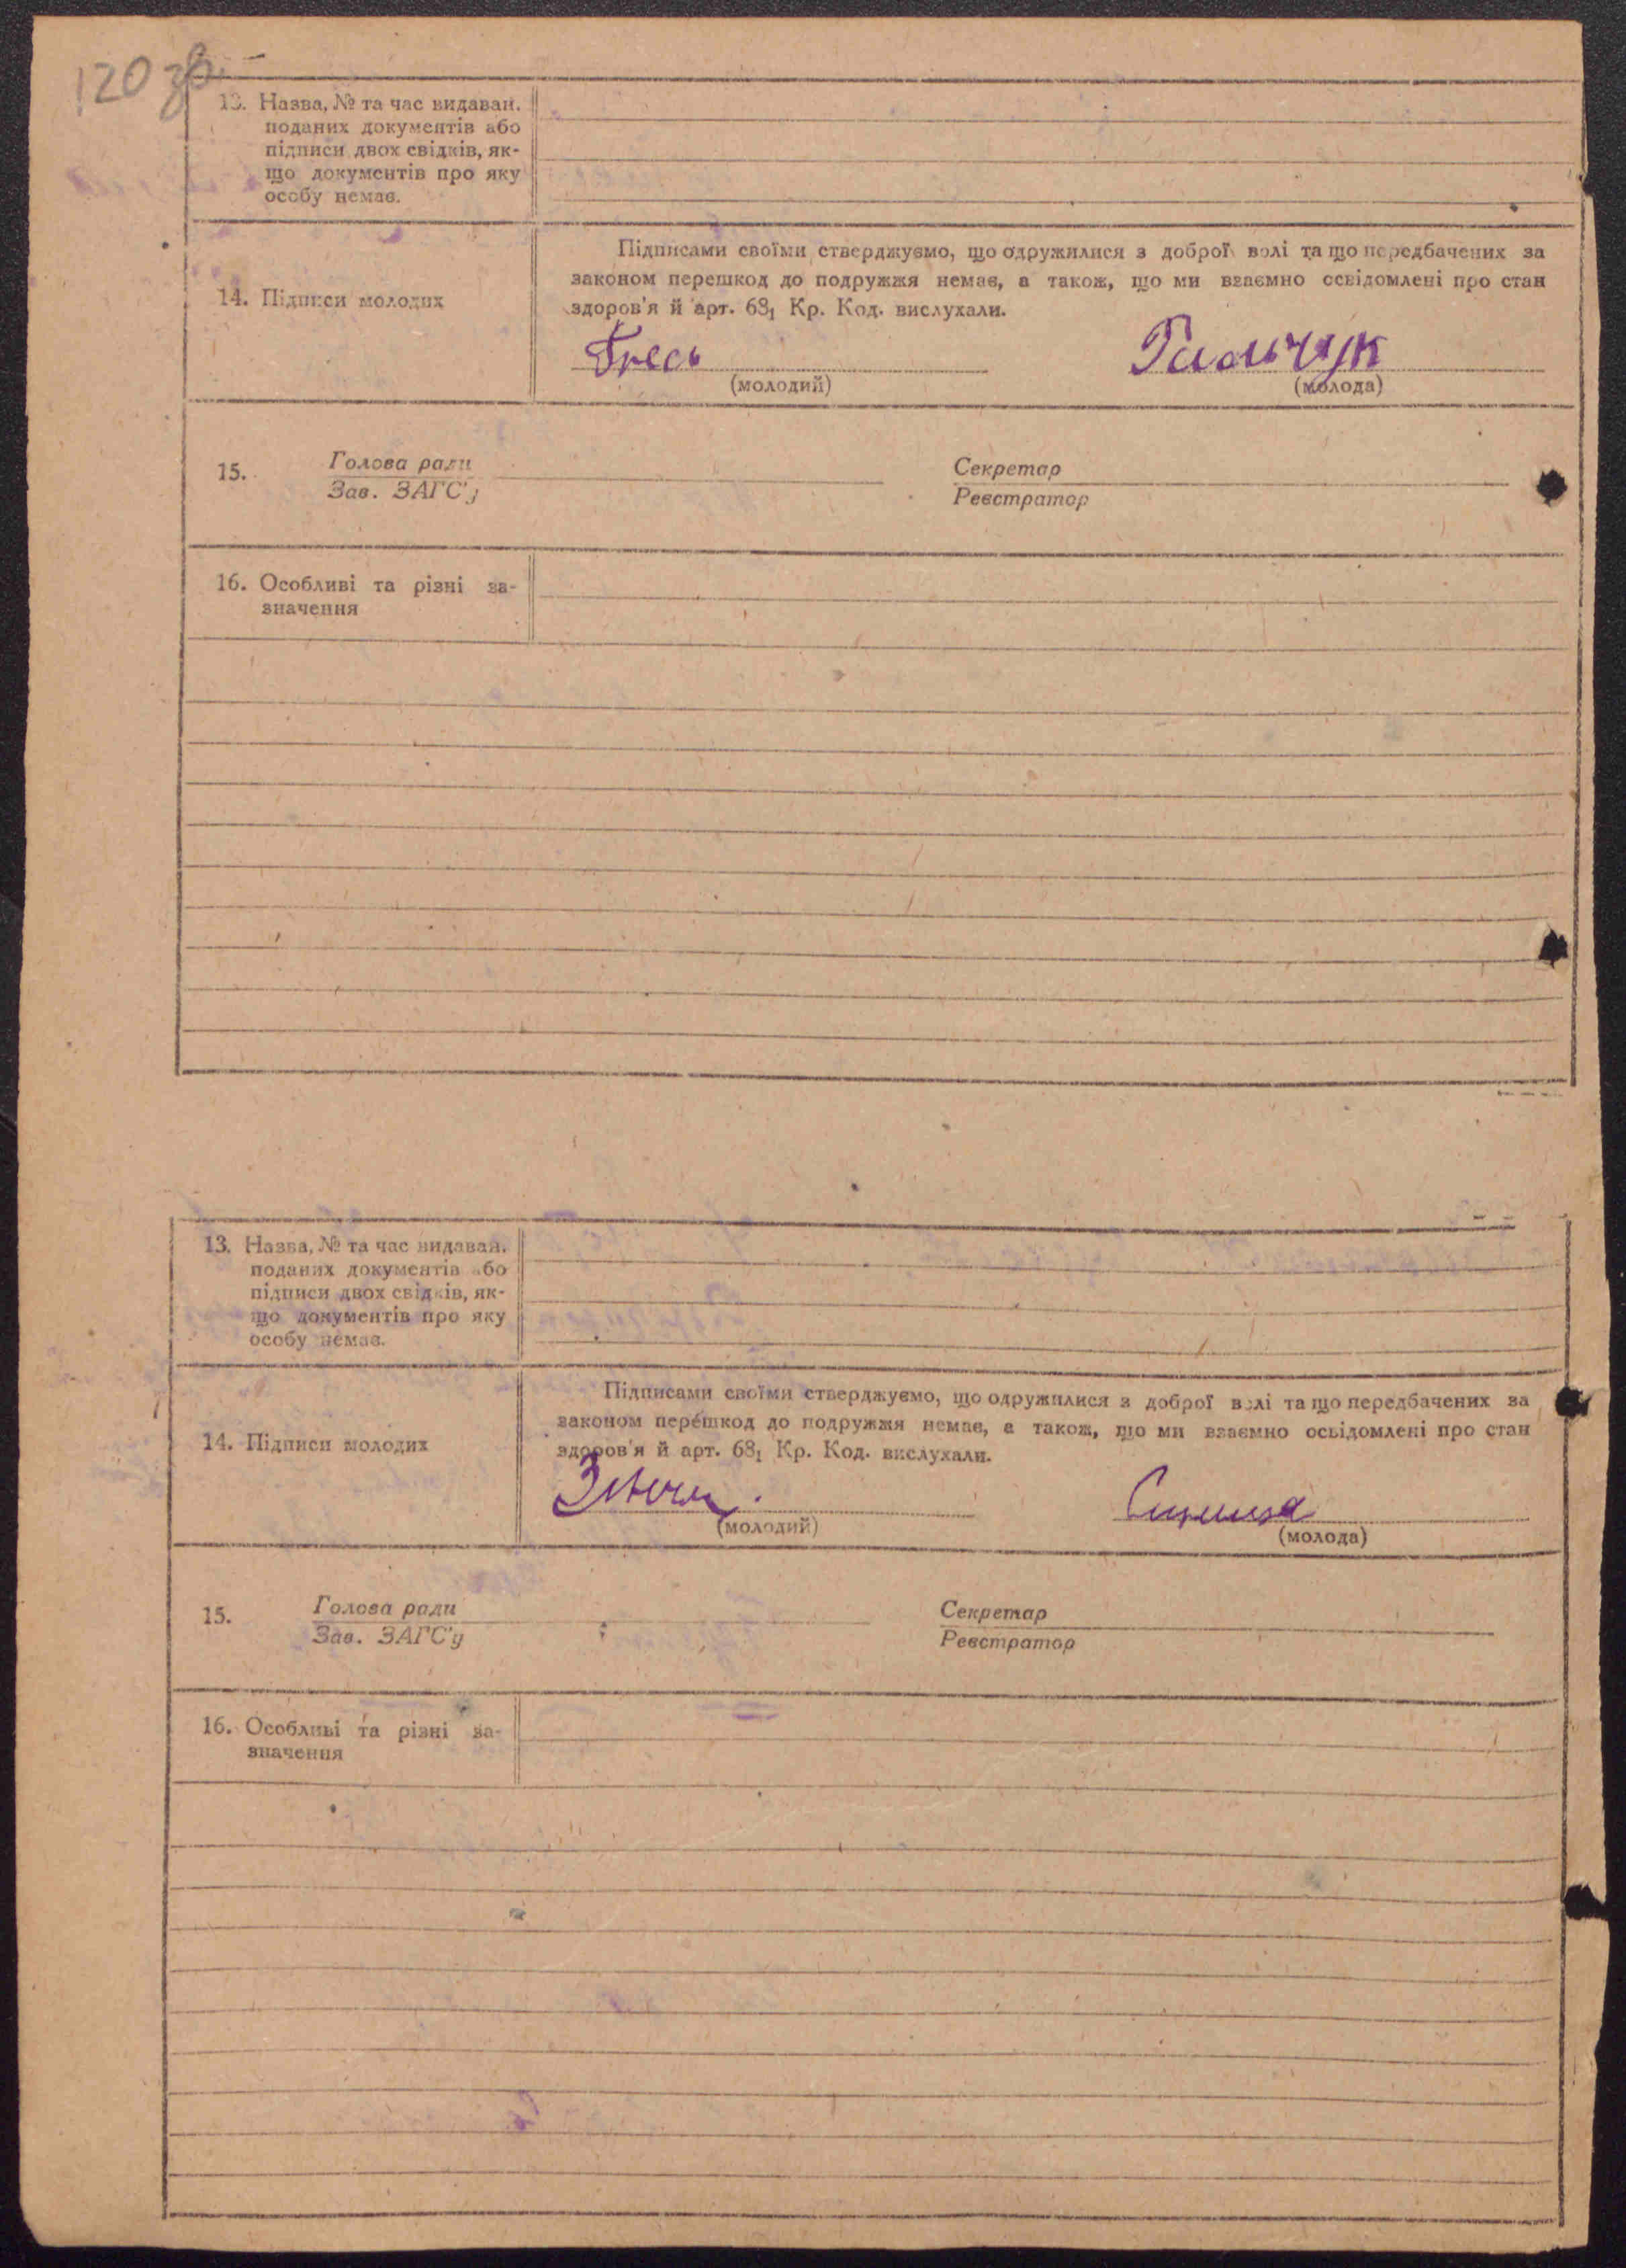 120 зв.
13. Назва, № та час видаван.
поданих документів або
підписи двох свідків, як-
що документів про яку
особу немає.
14. Підписи молодих
Підписами своїми стверджуємо, що одружилися з доброї волі та що передбачених за
законом перешкод до подружжя немає, а також, що ми взаємно освідомлені про стан
здоров'я й арт. 68₁ Кр. Код. вислухали.
Гальчук
(молодий) (молода)
15. Голова ради Секретар
Зав. ЗАГС'у Реєстратор
16. Особливі та різні за-
значення
13. Назва, № та час видаван.
поданих документів або
підписи двох свідків, як-
що документів про яку
особу немає.
14. Підписи молодих
Підписами своїми стверджуємо, що одружилися з доброї волі та що передбачених за
законом перешкод до подружжя немає, а також, що ми взаємно осьідомлені про стан
здоров'я й арт. 68₁ Кр. Код. вислухали.
(молодий) (молода)
15. Голова ради Секретар
Зав. ЗАГС'у Реєстратор
16. Особливі та різні за-
значення